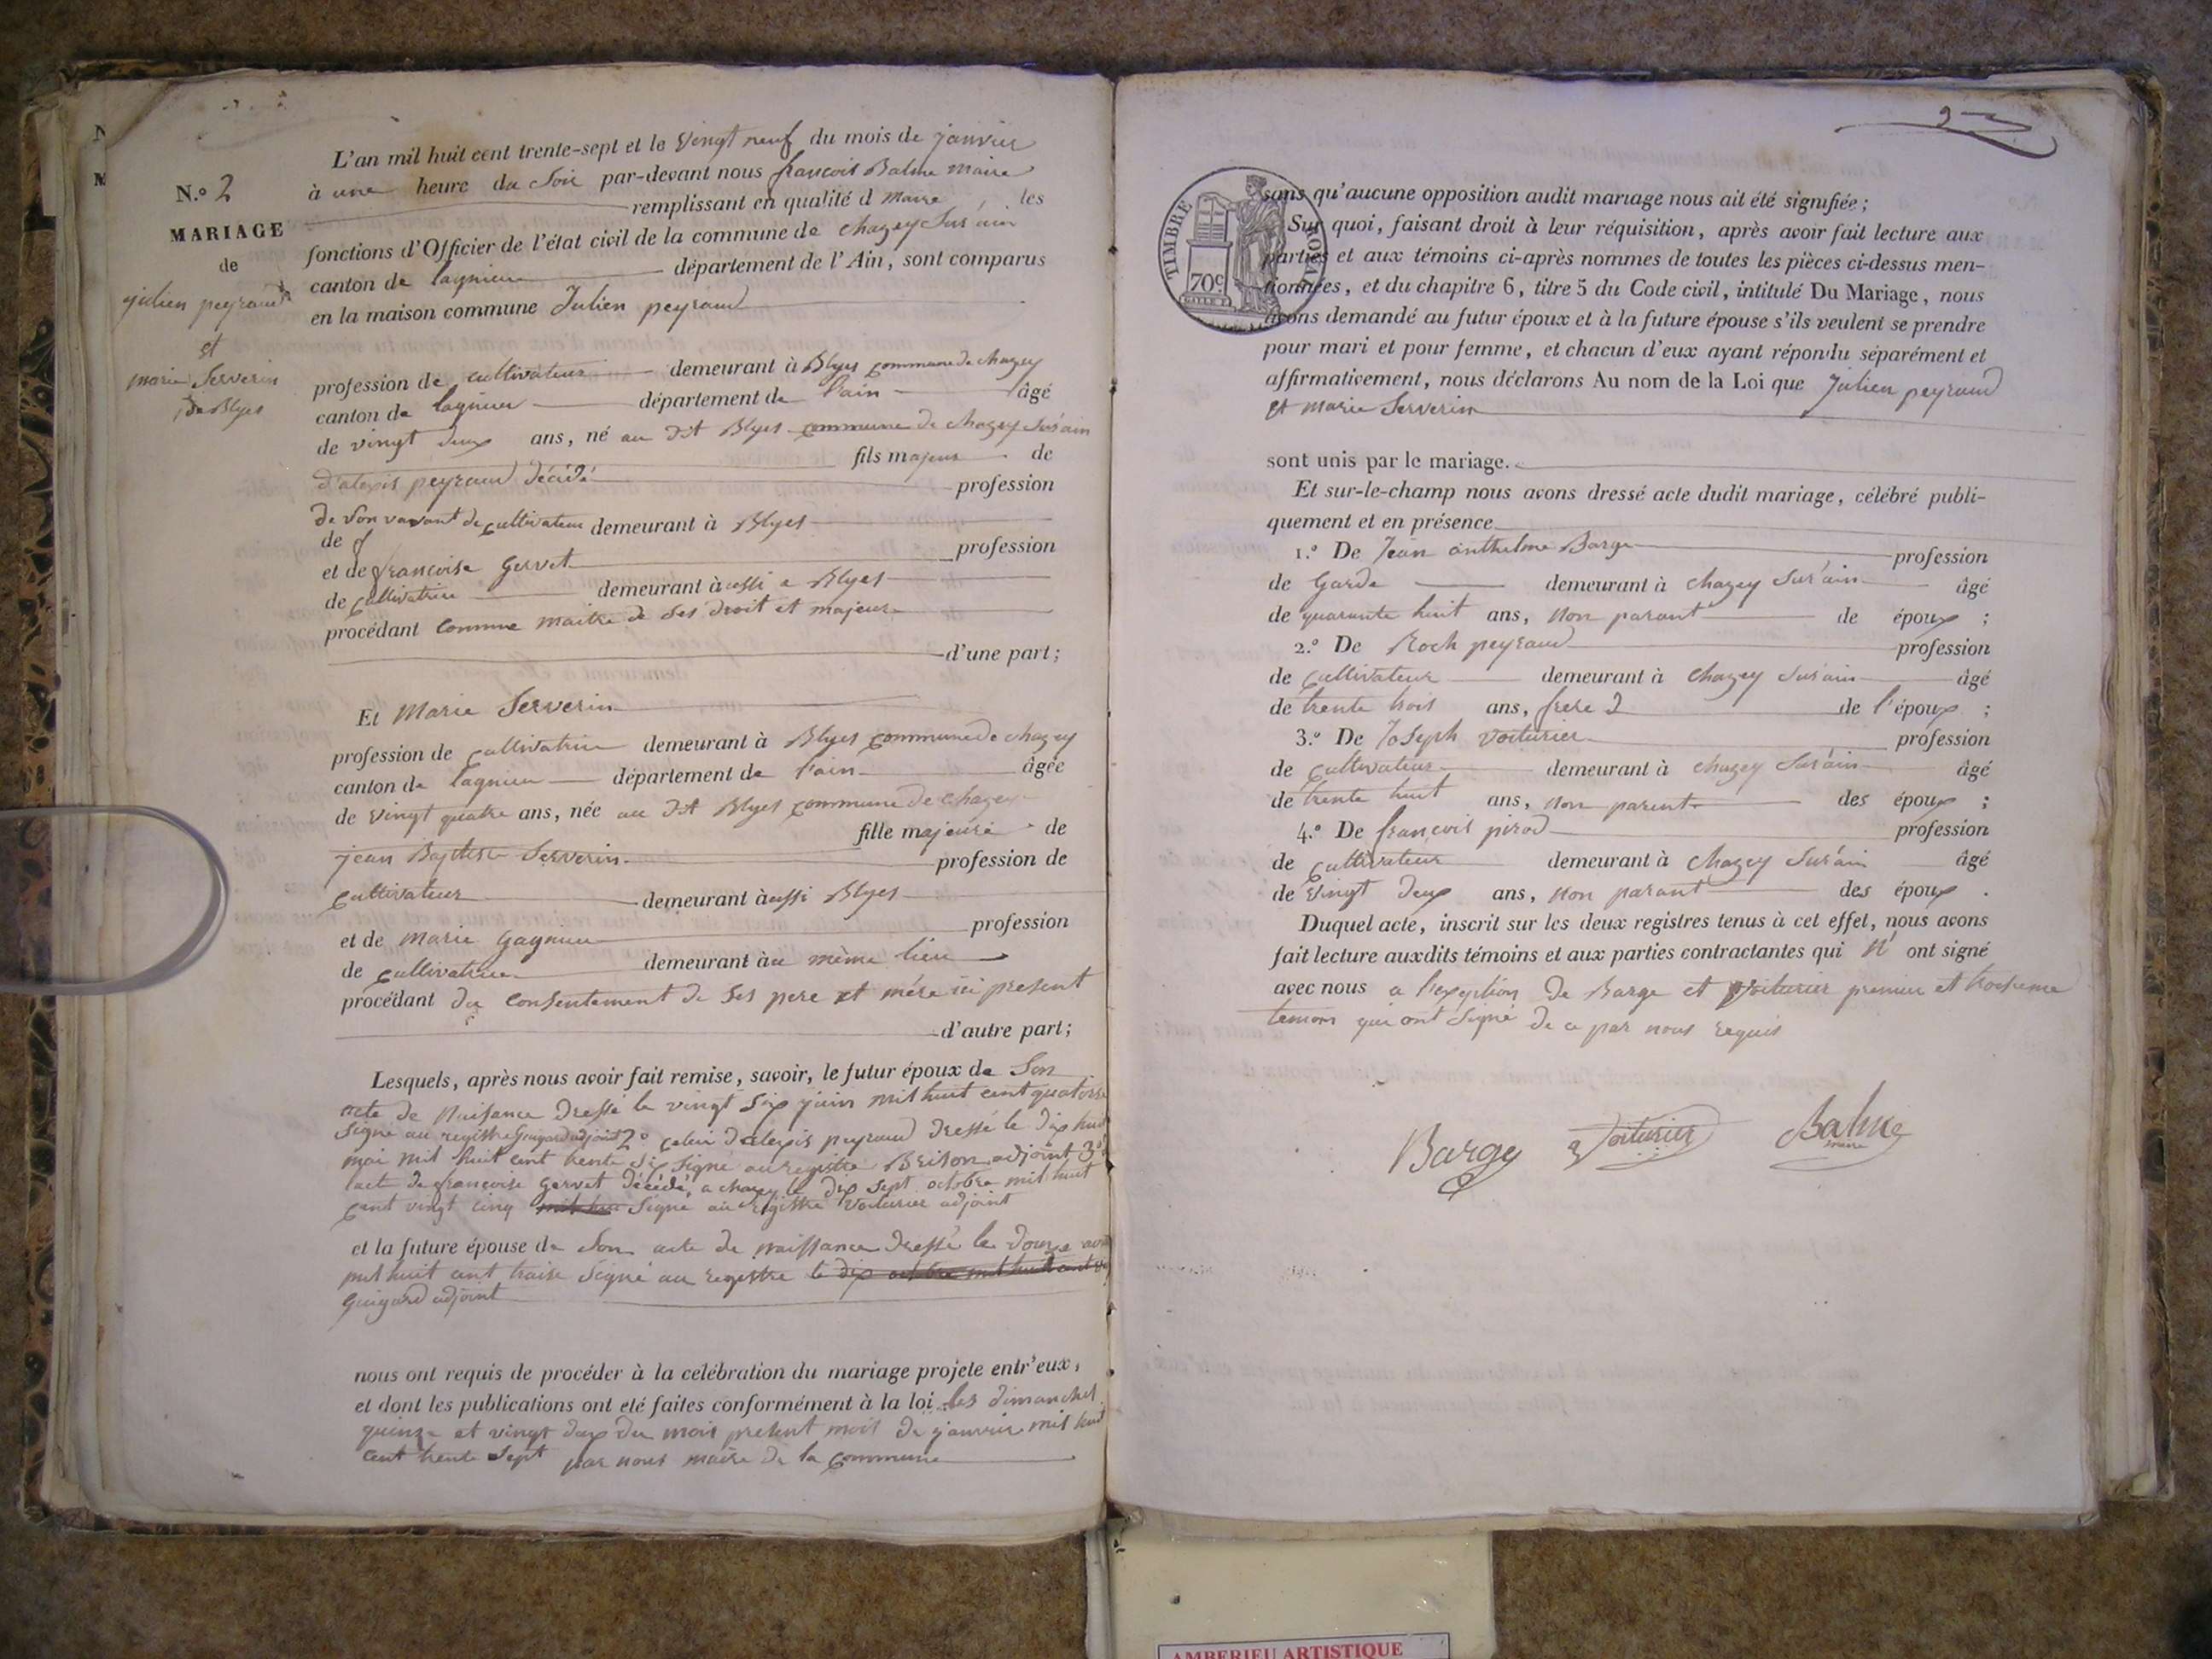 N.o 2
MARIAGE
de
julien peyraud
et
marie Serverin
de Blyes
L'an mil huit cent trente-sept et le vingt neuf du mois de janvier
à une heure du Soir par-devant nous francois Balme maire
remplissant en qualité d maire les
fonctions d'Officier de l'état civil de la commune de chazey Sur ain
canton de lagnieu département de l'Ain, sont comparus
en la maison commune Julien peyraud
profession de cultivateur demeurant à Blyes commune de chazey
canton de lagnieu département de l'ain âgé
de vingt deux ans, né au dit Blyes commune de chazey Sur ain
fils majeur de
d'alexis peyraud décédé profession
de Son vavant de cultivateur demeurant à Blyes
de
et de francoise Gervet profession
de cultivatrice demeurant à aussi a Blyes
procédant comme maitre de Ses droit et majeur
d'une part;
Et Marie Serverin
profession de cultivatrice demeurant à Blyes commune de chazey
canton de lagnieu département de l'ain âgée
de vingt quatre ans, née au dit Blyes commune de chazey
fille majeure de
jean Baptiste Serverin profession de
cultivateur demeurant à aussi Blyes
et de marie Gagnieu profession
de cultivatrice demeurant à u même lieu
procédant du consentement de Ses pere et mére ici present
d'autre part;
Lesquels, après nous avoir fait remise, savoir, le futur époux de Son
acte de Naisance dressé le vingt Six juin mil huit cent quatorze
Signé au registre Guigard adjoint 2o celui d'alexis peyraud dressé le dix huit
mai mil huit cent trente Six Signé au registre Brison adjoint 3o
l'acte de francoise Gervet décédé, a chazey le dix Sept octobre mil huit
cent vingt cinq Signé au registre Voiturier adjoint
et la future épouse de Son acte de naissance dressé le douze
mil huit cent traize Signé au registre le dix octobre mil huit cent
Guigard adjoint
nous ont requis de procéder à la célébration du mariage projeté entr'eux,
et dont les publications ont été faites conformément à la loi les dimanches
quinze et vingt deux du mois present mois de janvier mil huit
cent trente Sept par nous maire de la commune
2
TIMBRE ROYAL
70c
sans qu'aucune opposition audit mariage nous ait été signifiée;
Sur quoi, faisant droit à leur réquisition, après avoir fait lecture aux
parties et aux témoins ci-après nommes de toutes les pièces ci-dessus men-
tionnées, et du chapitre 6, titre 5 du Code civil, intitulé Du Mariage, nous
avons demandé au futur époux et à la future épouse s'ils veulent se prendre
pour mari et pour femme, et chacun d'eux ayant répondu séparément et
affirmativement, nous déclarons Au nom de la Loi que Julien peyraud
et marie Serverin
sont unis par le mariage.
Et sur-le-champ nous avons dressé acte dudit mariage, célébré publi-
quement et en présence
1.o De Jean anthelme Barge profession
de Garde demeurant à chazey Sur ain âgé
de quarante huit ans, non parant de époux ;
2.o De Roch peyraud profession
de cultivateur demeurant à chazey Sur ain âgé
de trente trois ans, frere d de l'époux ;
3.o De Joseph voiturier profession
de cultivateur demeurant à chazey Sur ain âgé
de trente huit ans, non parent des époux ;
4.o De francois pirod profession
de cultivateur demeurant à chazey Sur ain âgé
de vingt deux ans, non parant des époux .
Duquel acte, inscrit sur les deux registres tenus à cet effet, nous avons
fait lecture auxdits témoins et aux parties contractantes qui n' ont signé
avec nous a l'exception de Barge et Voiturier premier et troisieme
temoin qui ont Signé de ce par nous requis
Barge Voiturier Balme
maire
AMBERIEU ARTISTIQUE